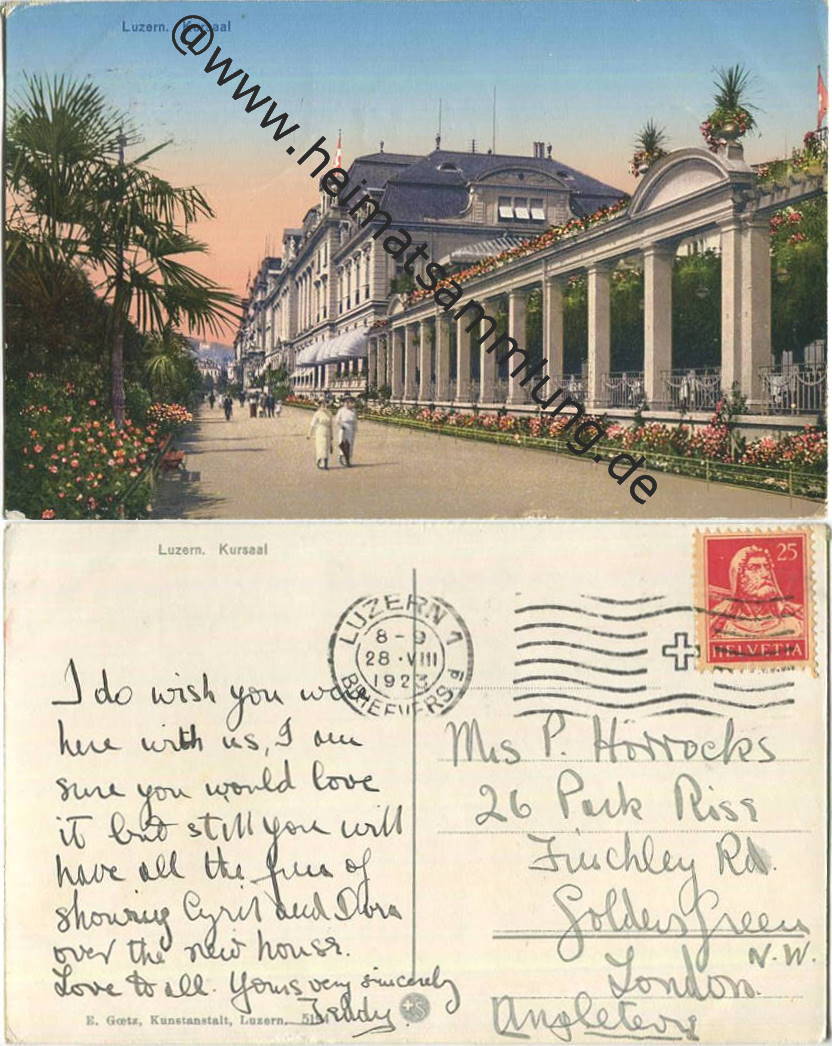 Luzern. Kursaal
@www.heimatsammlung.de
Luzern. Kursaal
25
HELVETIA
LUZERN 1
8-9
28.VIII
1923
BRIEFVERS.
I do wish you were
here with us, I am
sure you would love
it but still you will
have all the fun of
showing Cyril and Dora
over the new house.
Love to all. Yours very sincerely
Teddy.
Mrs P. Horrocks
26 Park Rise
Finchley Rd.
Golders Green
N.W.
London.
Angleterre
E. Gœtz, Kunstanstalt, Luzern.